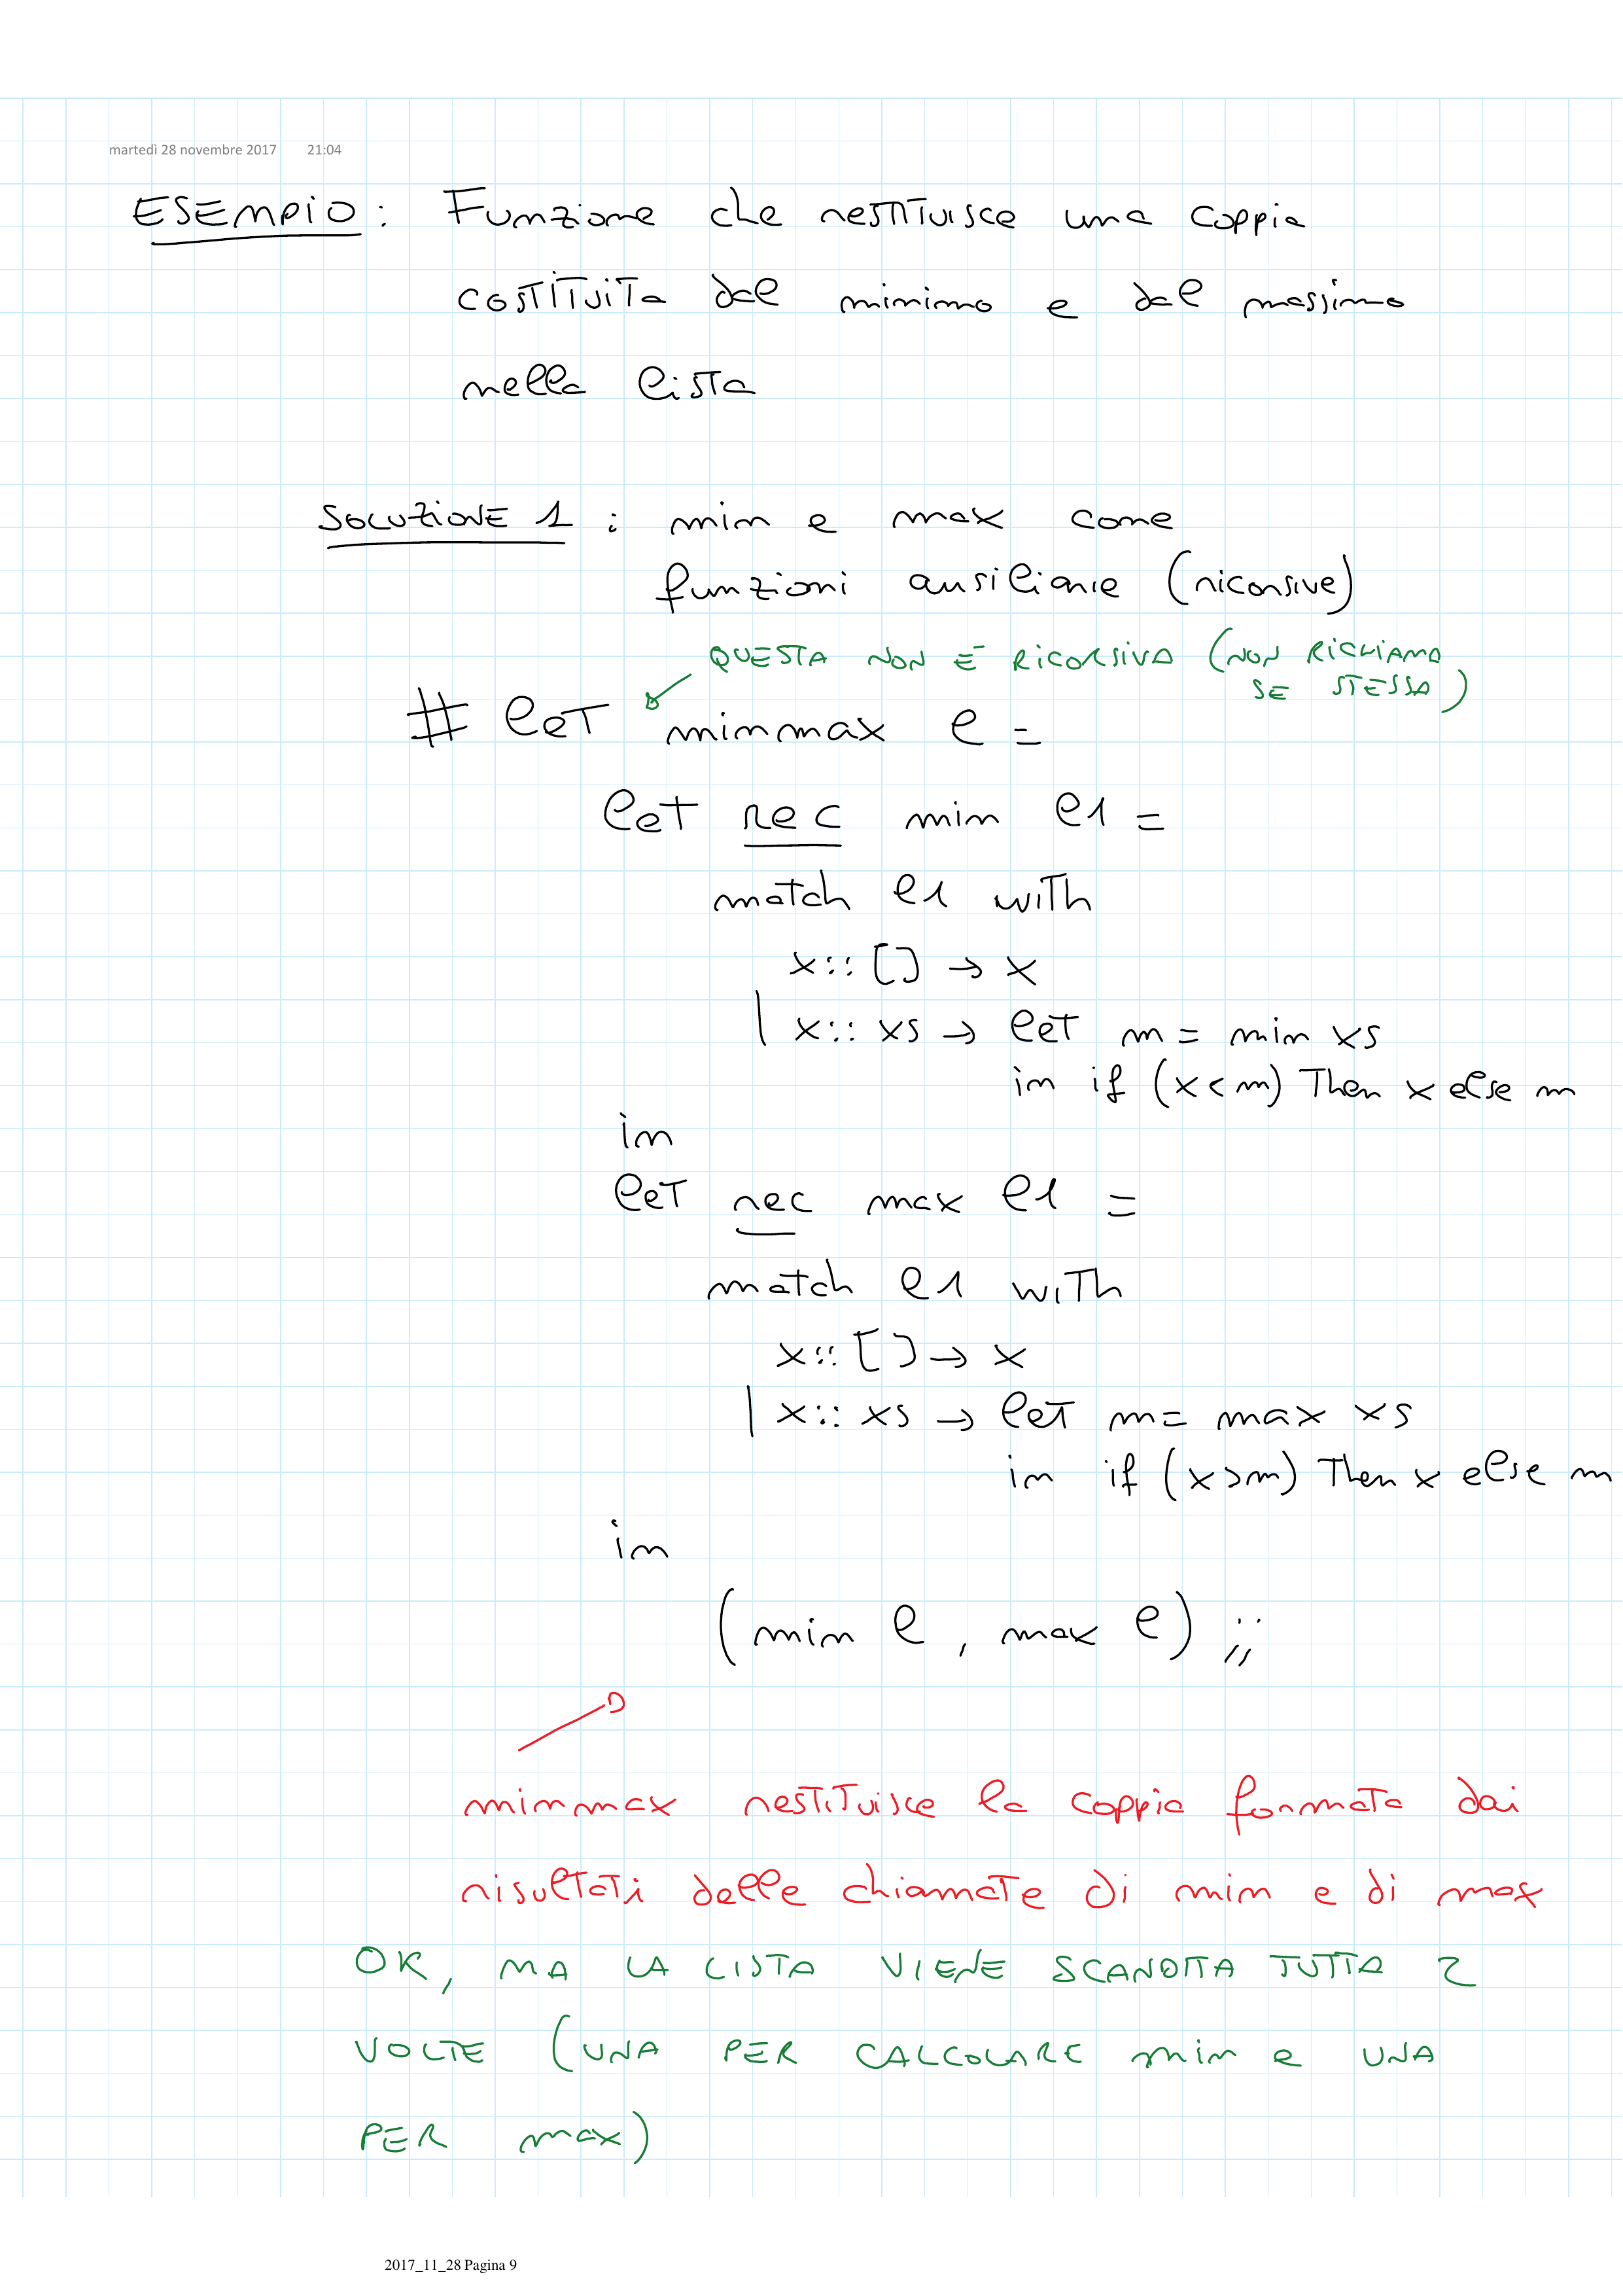 martedì 28 novembre 2017 21:04
ESEMPIO: Funzione che restituisce una coppia
costituita dal minimo e dal massimo
nella lista
SOLUZIONE 1: min e max come
funzioni ausiliarie (ricorsive)
QUESTA NON È RICORSIVA (NON RICHIAMA
SE STESSA)
# let minmax l =
let rec min l1 =
match l1 with
x::[] → x
| x::xs → let m = min xs
in if (x<m) then x else m
in
let rec max l1 =
match l1 with
x::[] → x
| x::xs → let m = max xs
in if (x>m) then x else m
in
(min l, max l);;
minmax restituisce la coppia formata dai
risultati delle chiamate di min e di max
OK, MA LA LISTA VIENE SCANDITA TUTTA 2
VOLTE (UNA PER CALCOLARE min e UNA
PER max)
2017_11_28 Pagina 9